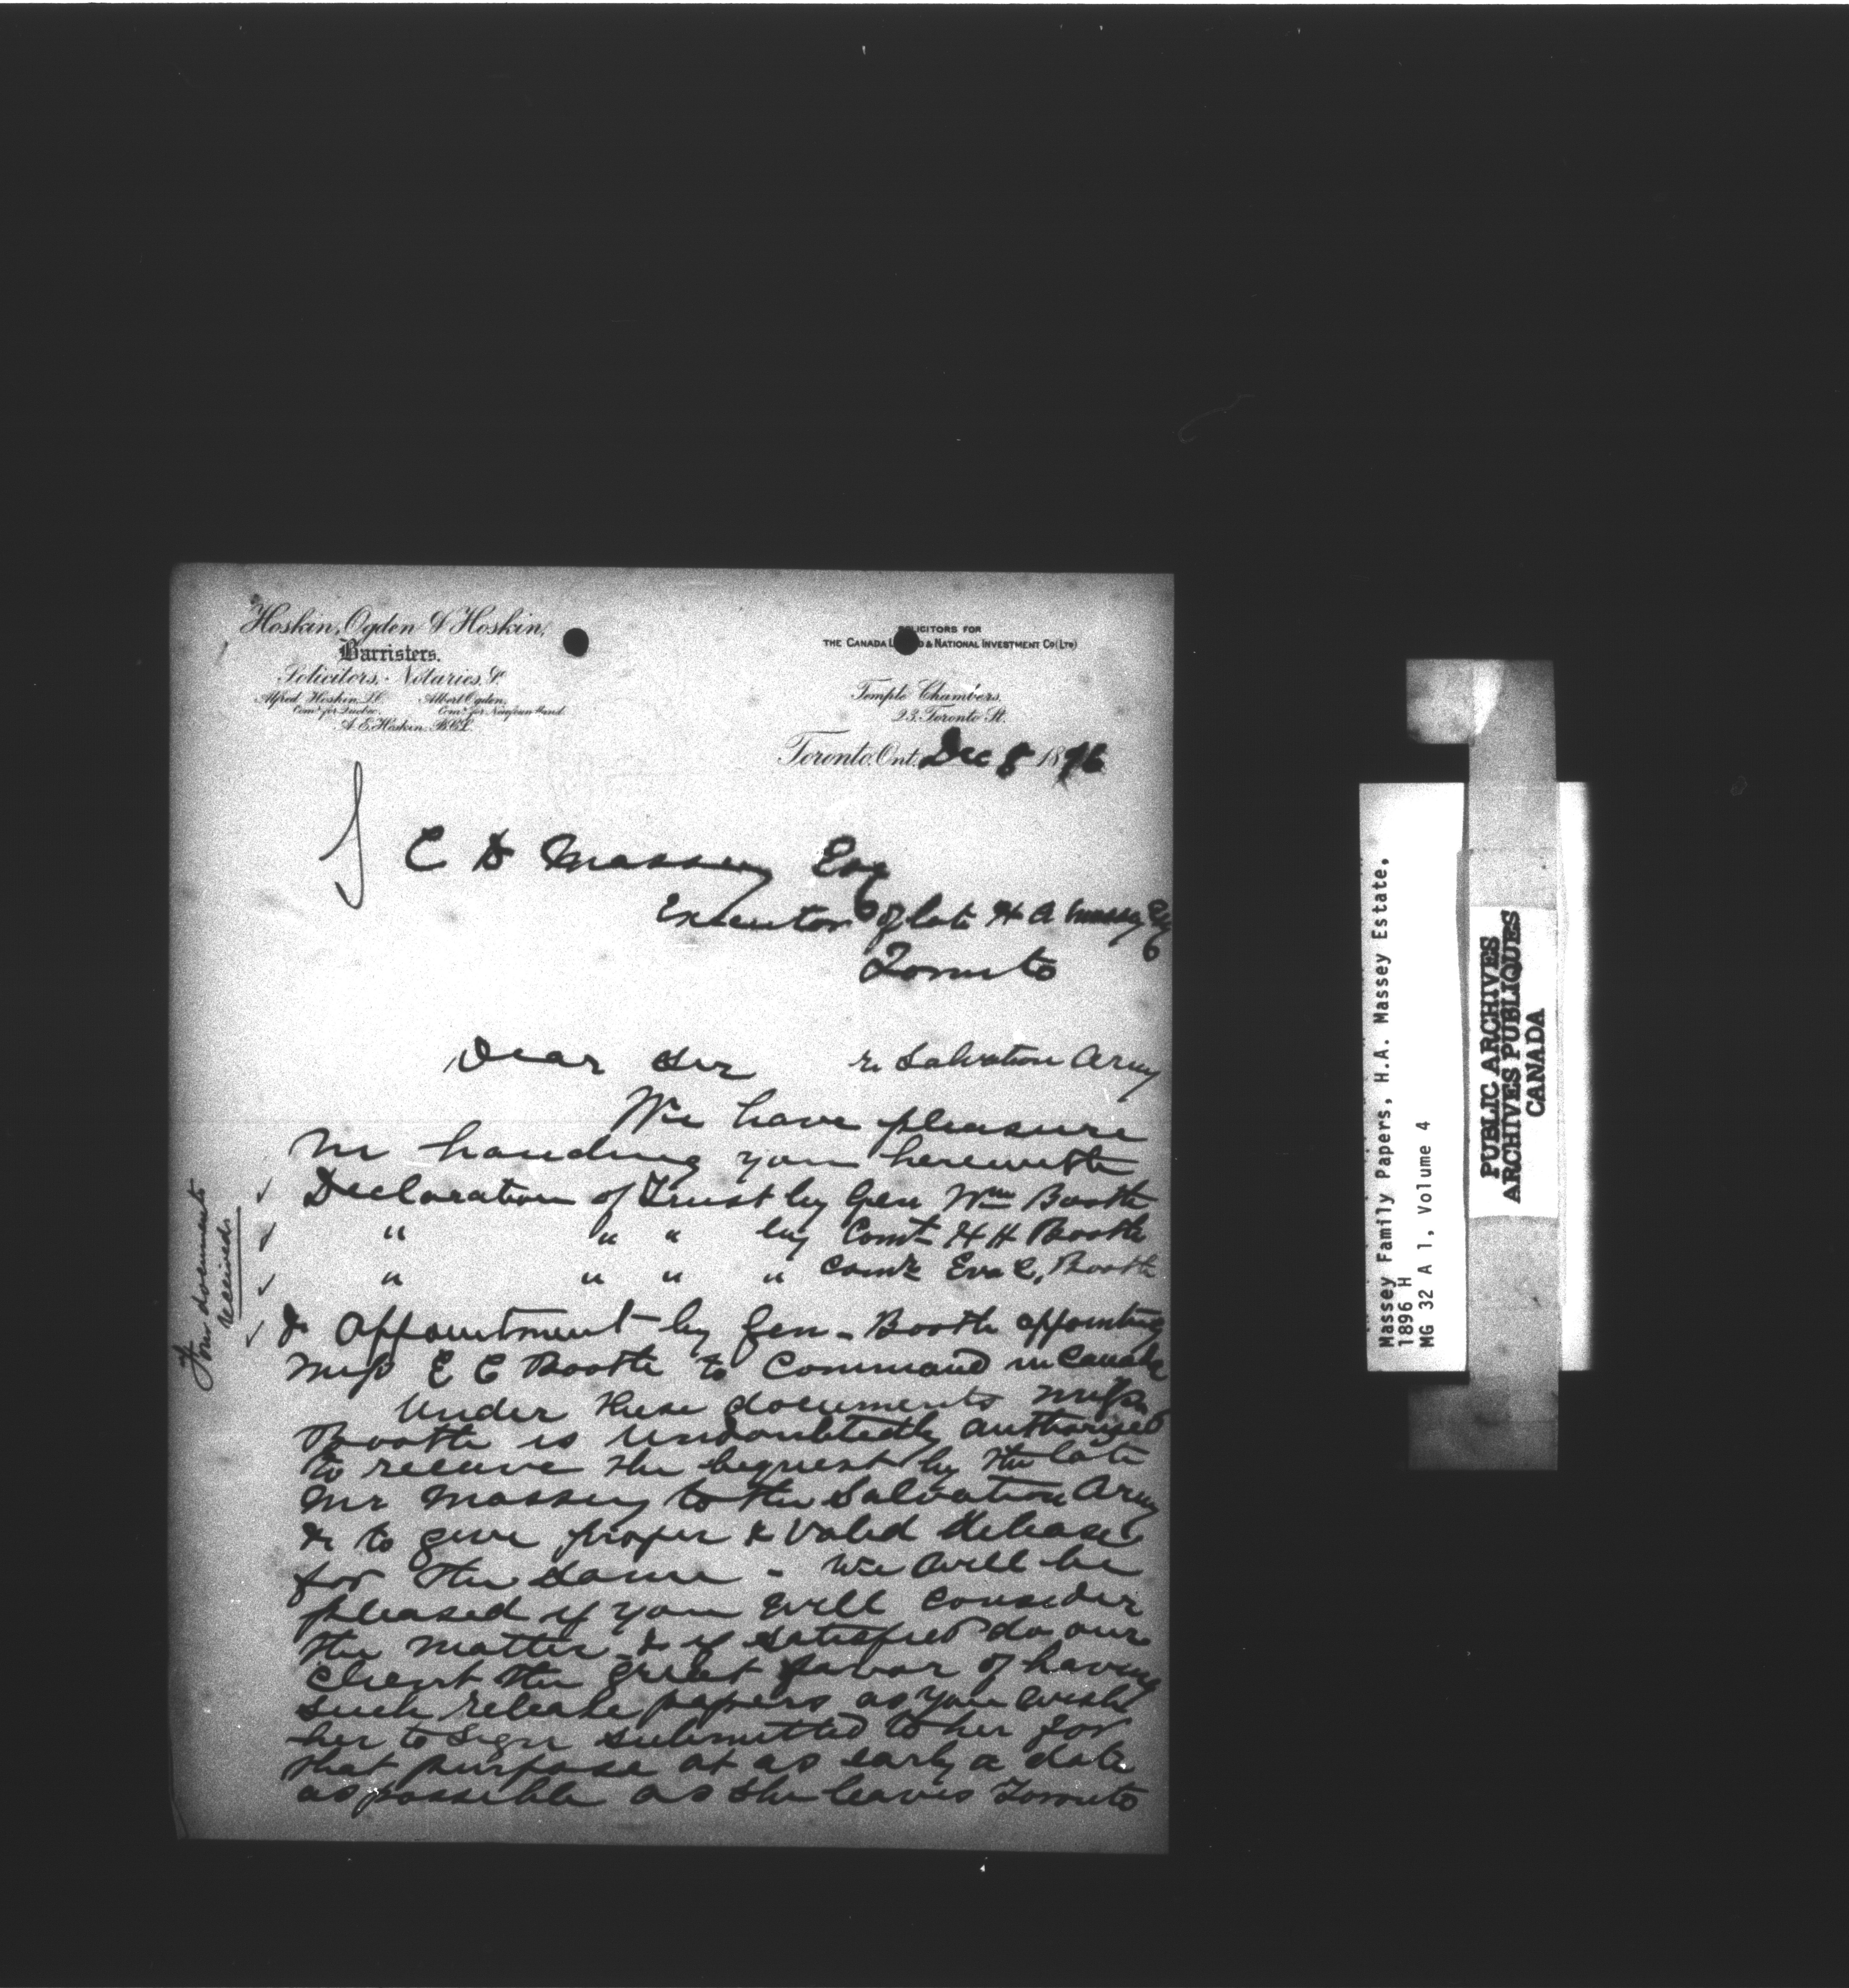 Hoskin, Ogden & Hoskin,
Barristers,
Solicitors, Notaries, &c
Alfred Hoskin, Albert Ogden,
Comr. for Quebec. Comr. for Newfoundland.
A. E. Hoskin, B.C.L.
SOLICITORS FOR
THE CANADA L D & NATIONAL INVESTMENT CO (LTD)
Temple Chambers,
23. Toronto St.
Toronto, Ont. Dec 8 1896
C D Massey Esq
Executor of late H A Massey Esq
Toronto
Dear Sir re Salvation Army
We have pleasure
in handing you herewith
Declaration of Trust by Gen Wm Booth
" " " by Comt H H Booth
" " " " Comr Eva C. Booth
& Appointment by Gen - Booth appointing
Miss E C Booth to Command in Canada
Under these documents Miss
Booth is undoubtedly authorized
to receive the bequest by the late
Mr Massey to the Salvation Army
& to give proper & valid Release
for the same - We will be
pleased if you will consider
the matter & if satisfied do our
client the great favor of having
such release papers as you wish
her to sign submitted to her for
that purpose at as early a date
as possible as she leaves Toronto
Four documents
received
Massey Family Papers, H.A. Massey Estate,
1896 H
MG 32 A 1, Volume 4
PUBLIC ARCHIVES
ARCHIVES PUBLIQUES
CANADA